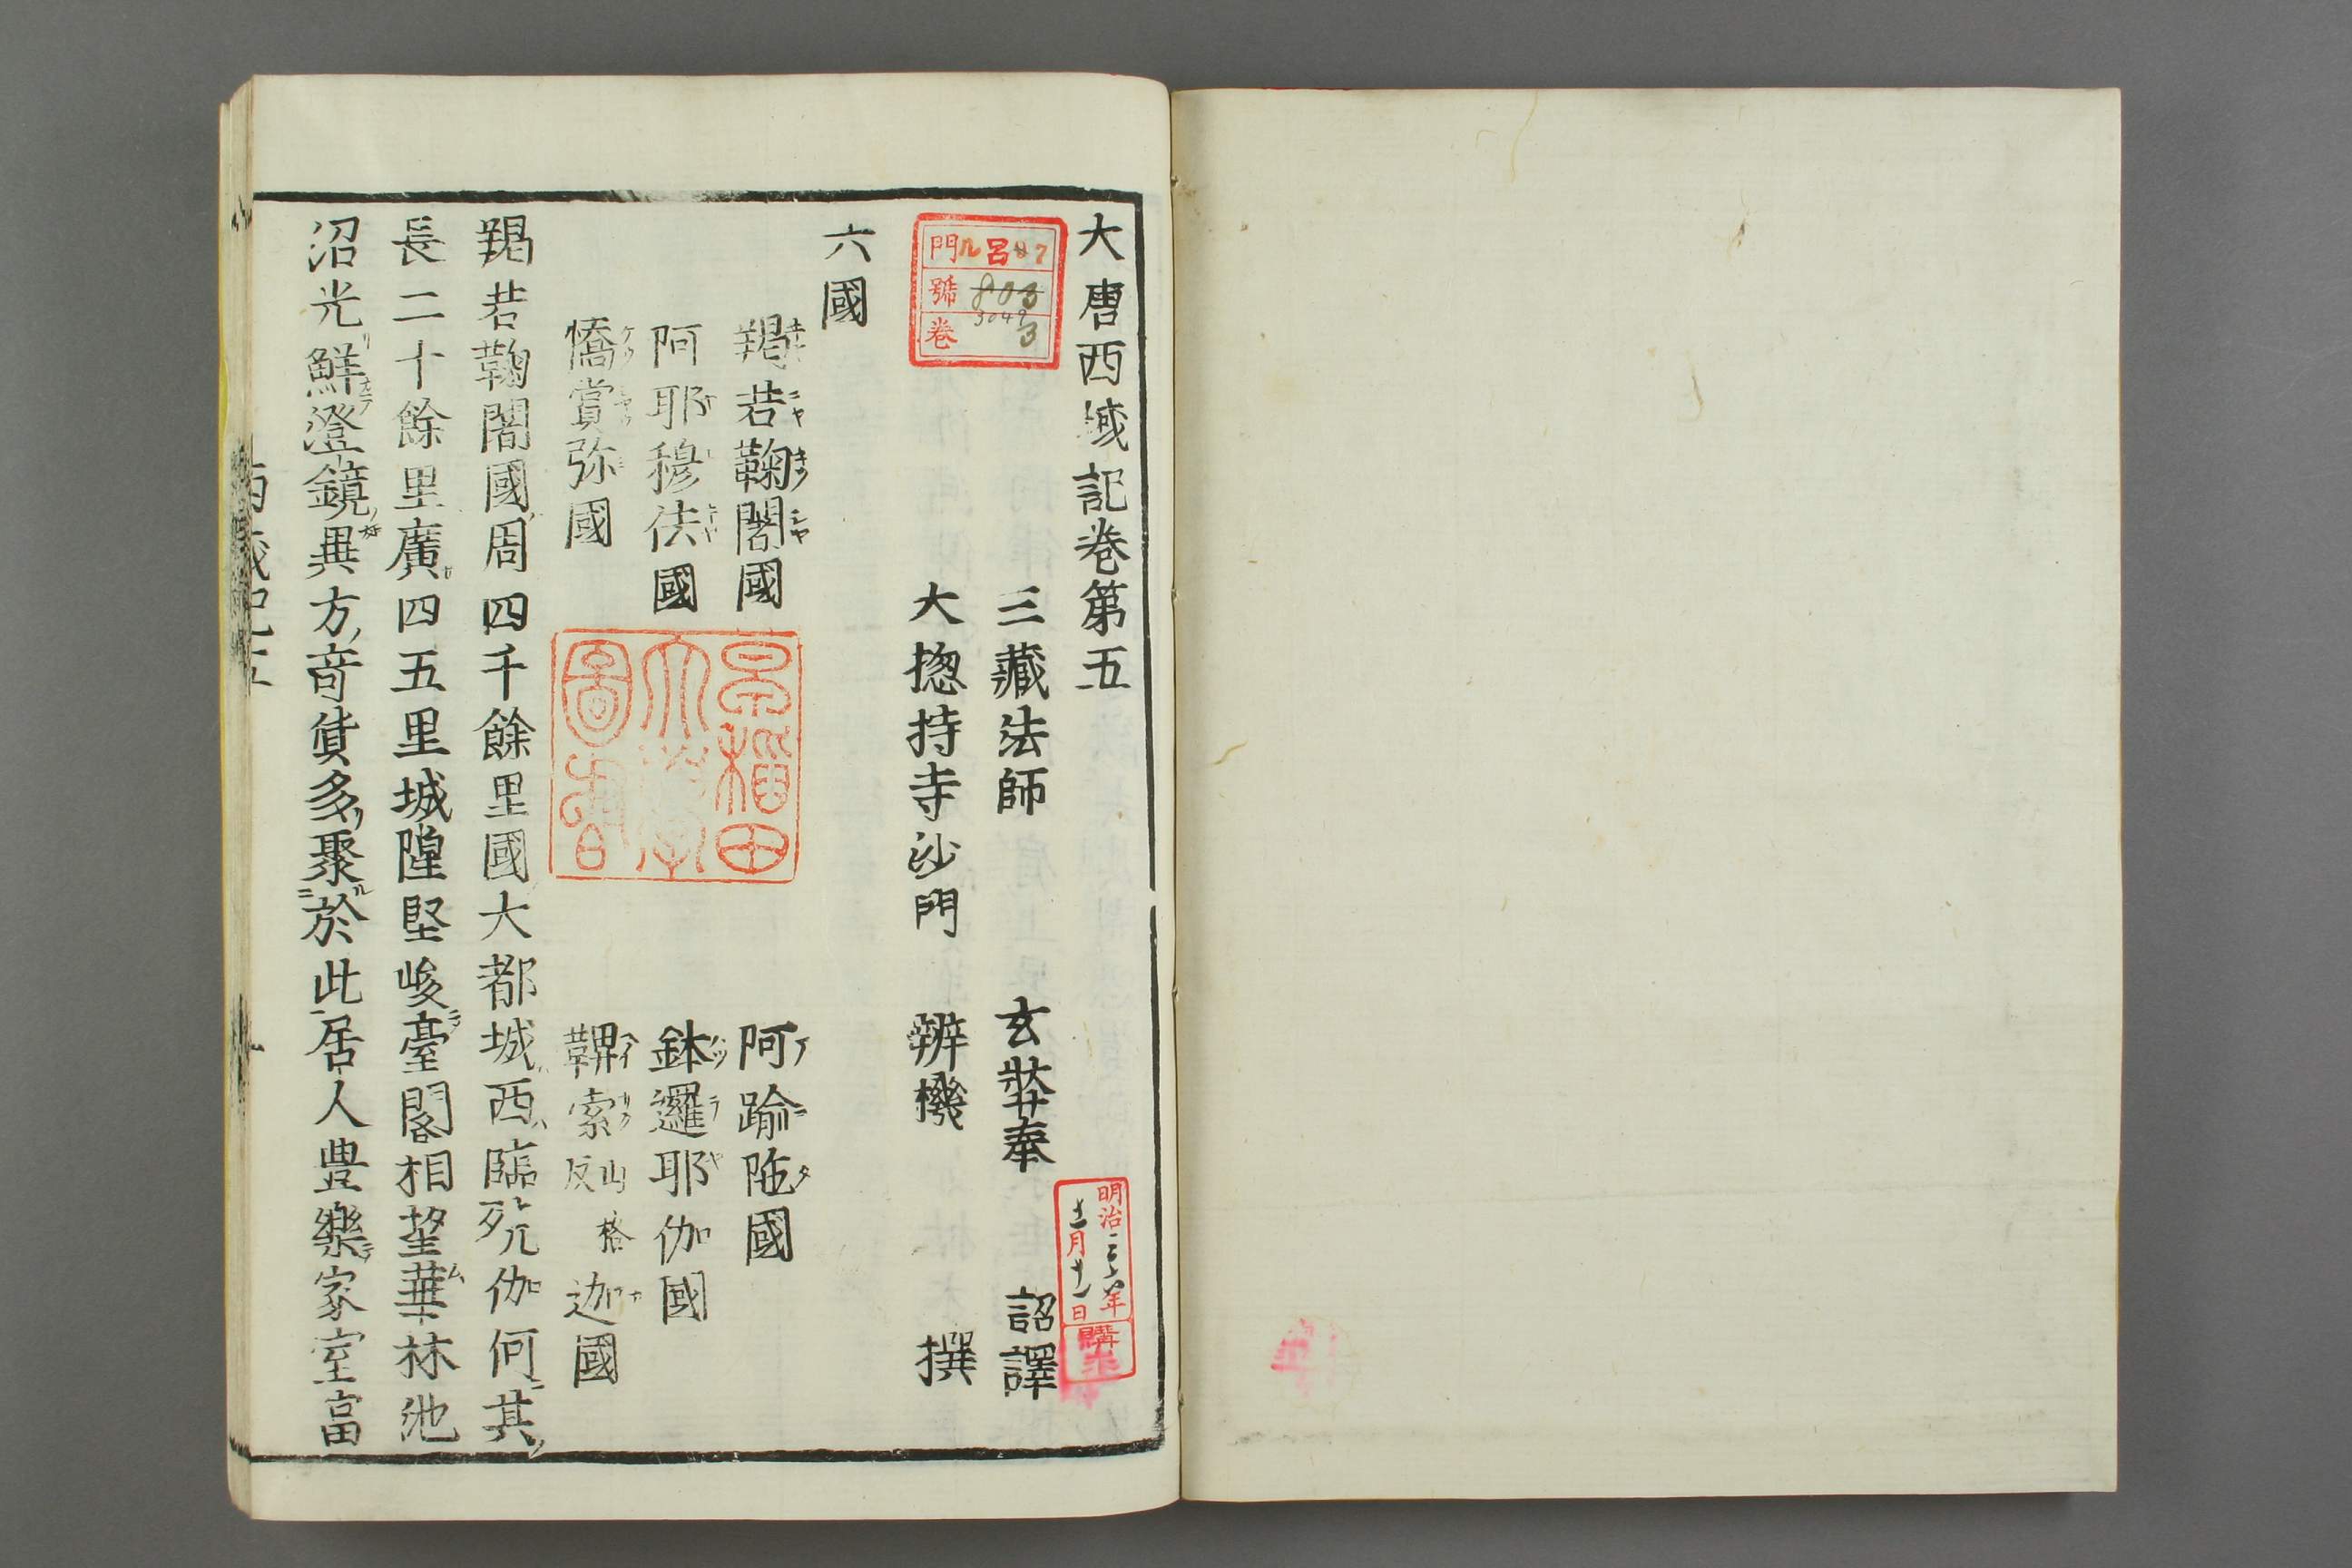 大唐西域記卷第五
三藏法師 玄奘奉 詔譯
大揔持寺沙門 辯機 撰
六國
羯若鞠闍國 阿踰陁國
阿耶穆佉國 鉢邏耶伽國
憍賞弥國 鞞索山格反迦國
羯若鞠闍國周四千餘里國大都城西臨殑伽河其
長二十餘里廣四五里城隍堅峻臺閣相望華林池
沼光鮮澄鏡異方竒貨多聚於此居人豊樂家室富
門 ル 呂
號 803
3049
卷 3
早稲田
大學
圖書
明治三六年
十二月十一日
購